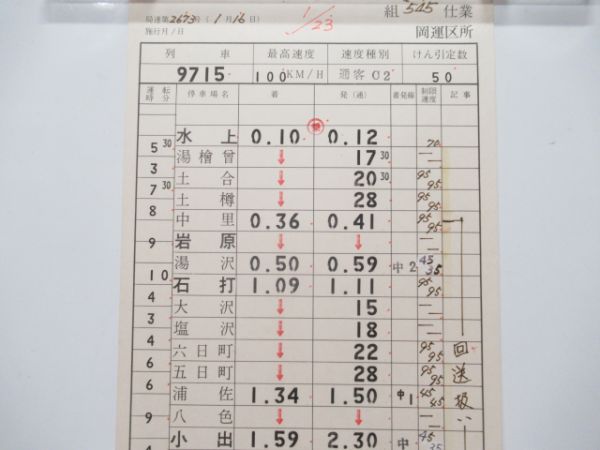 組 545 仕業
局達第2673号 (1月16日)
1/23
施行月/日
岡運区所
列車 最高速度 速度種別 けん引定数
9715 100KM/H 通客C2 50
運転時分 停車場名 着 発(通) 着発線 制限速度 記事
水上 0.10 0.12 70
5 30
湯檜曽 ↓ 17 30
3
土合 ↓ 20 30 95 95
7 30
土樽 ↓ 28 95 95
8
中里 0.36 0.41 95 95
岩原 ↓ ↓
9
湯沢 0.50 0.59 中2 45 35
10
石打 1.09 1.11 95 95
4
大沢 ↓ 15
3
塩沢 ↓ 18
4
六日町 ↓ 22 95 95 回
6
五日町 ↓ 28 95 95 送
6
浦佐 1.34 1.50 中1 45 45
八色 ↓ ↓
9
小出 1.59 2.30 中 45 35
4